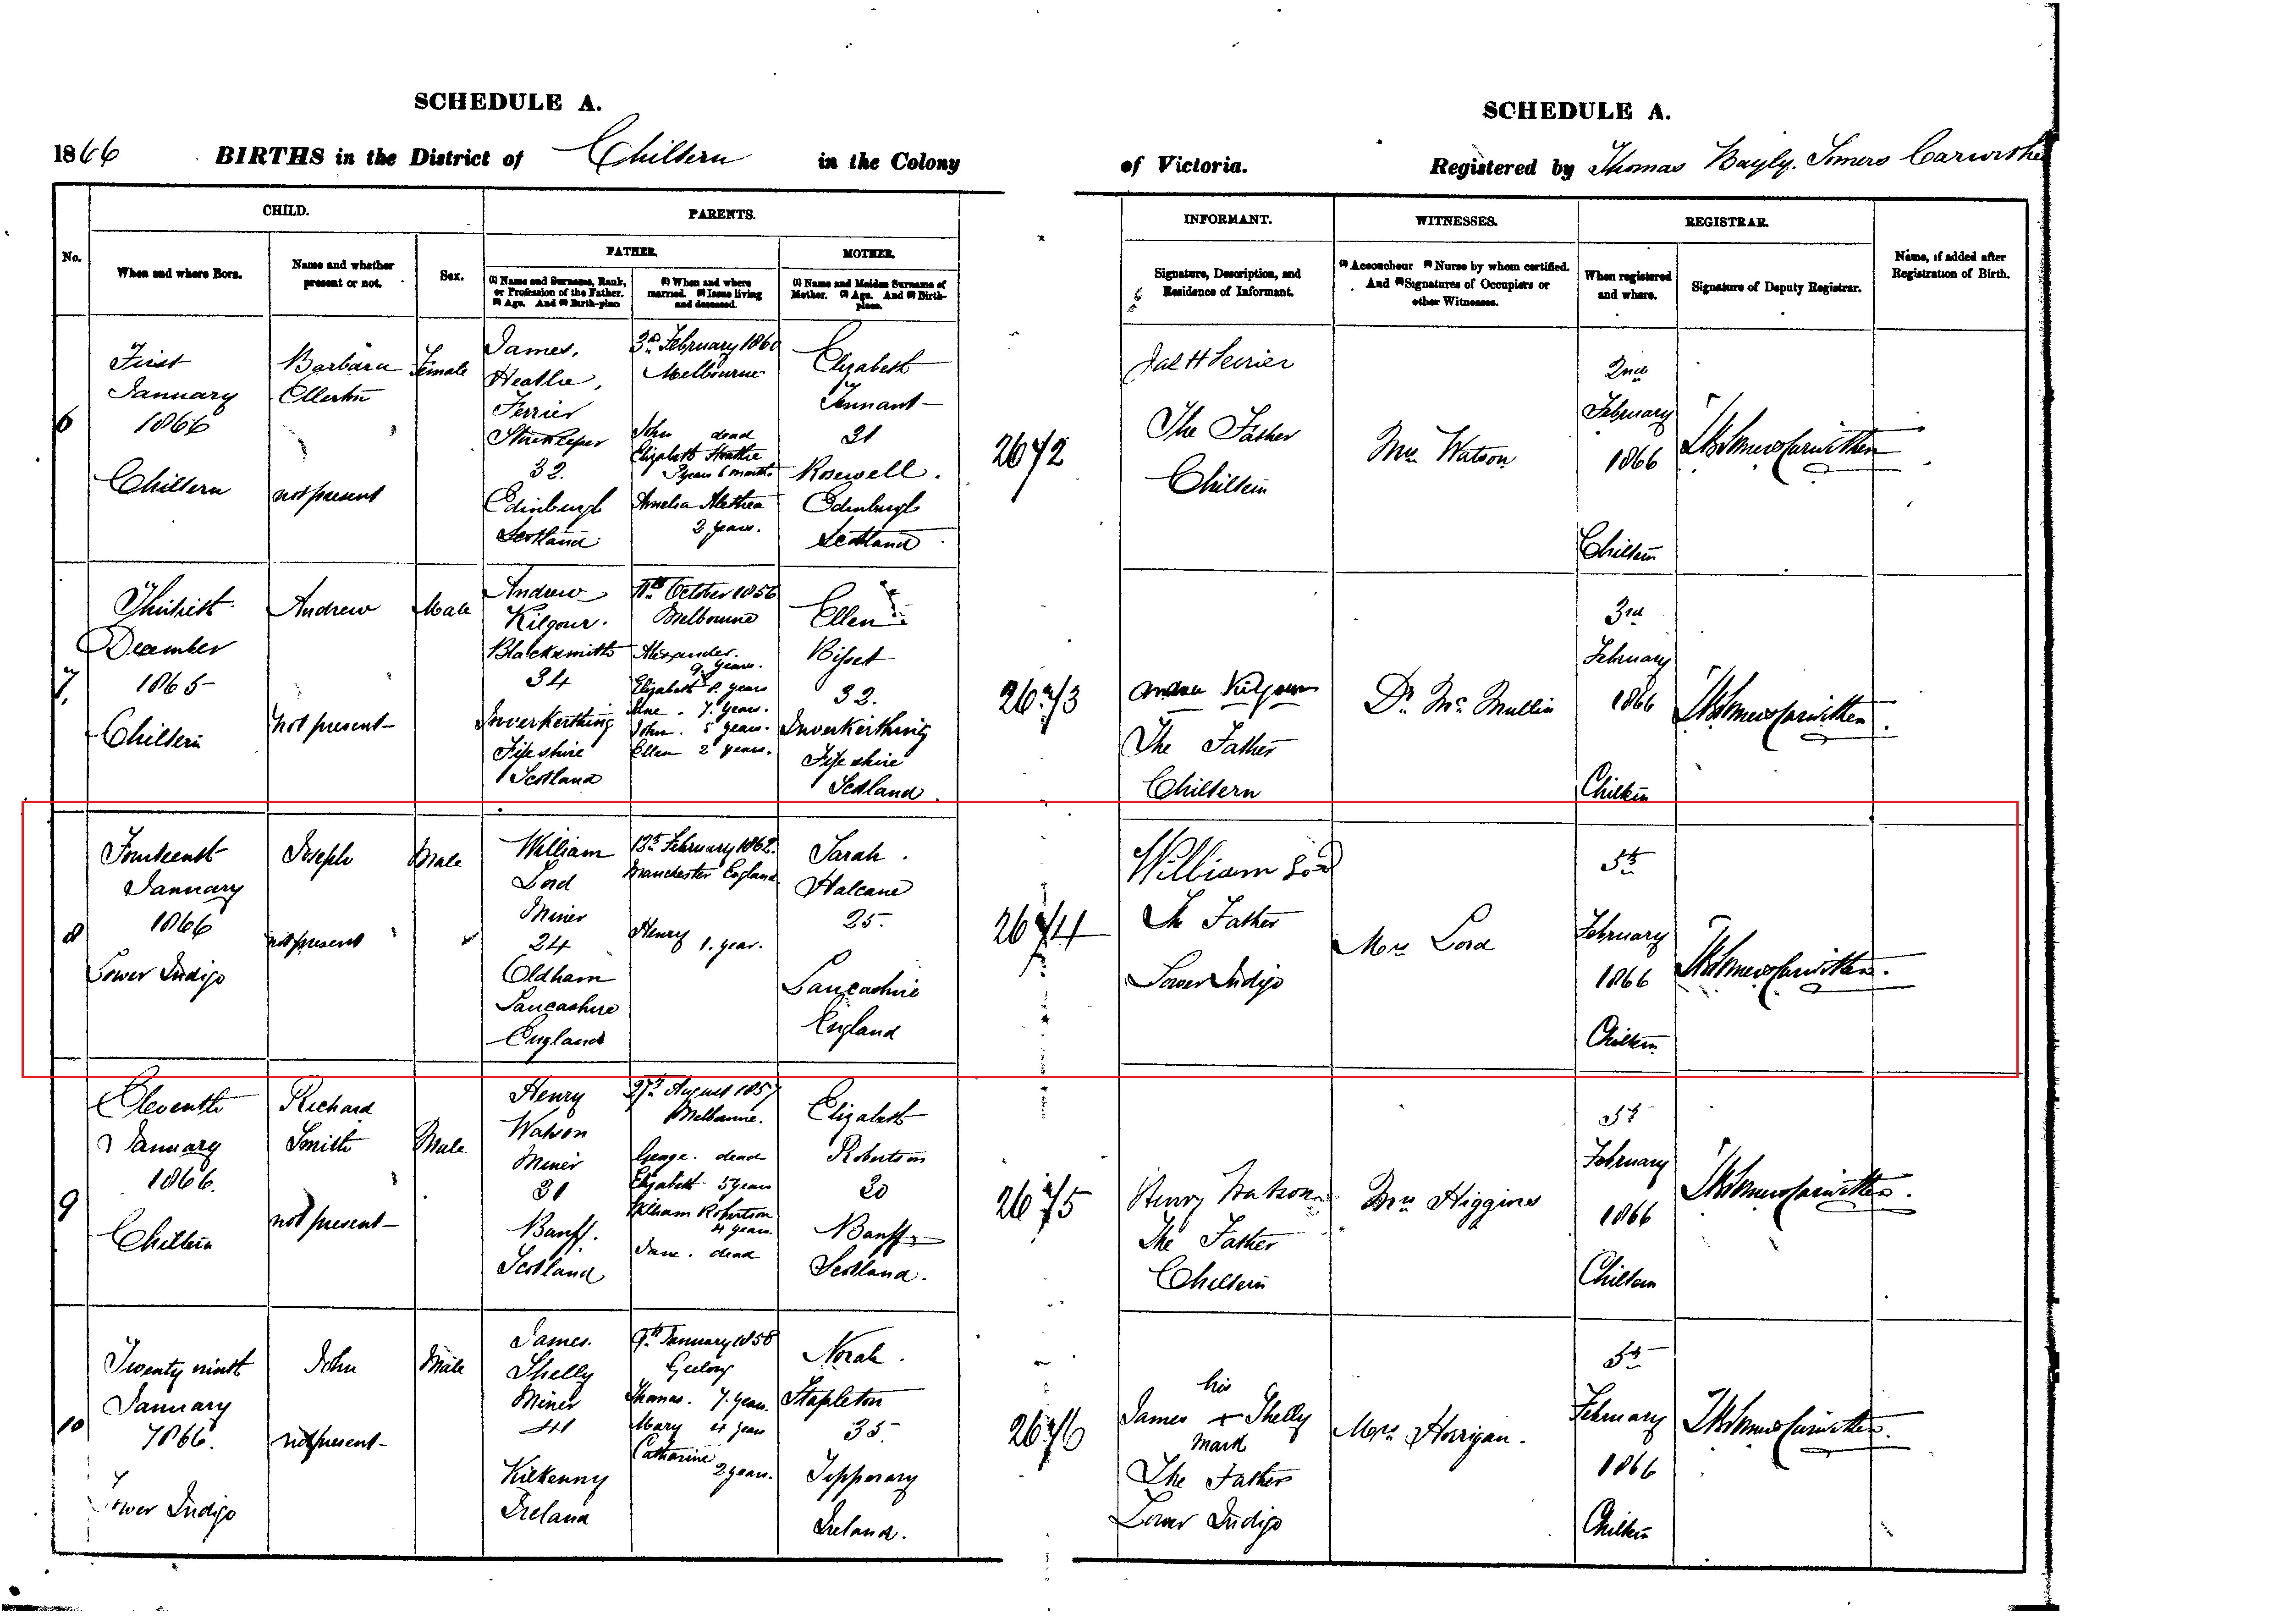 SCHEDULE A.
1866 BIRTHS in the District of Chiltern in the Colony
No.
CHILD.
When and where Born.
Name and whether present or not.
Sex.
PARENTS.
FATHER.
(1) Name and Surname, Rank, or Profession of the Father. (2) Age. And (3) Birth-place
(1) When and where married. (2) Issue living and deceased.
MOTHER.
(1) Name and Maiden Surname of Mother. (2) Age. And (3) Birth-place.
6
First
January
1866
Chiltern
Barbara
Ellerton
not present
Female
James,
Heathe,
Ferrier
Storekeeper
32.
Edinburgh
Scotland
3rd February 1860
Melbourne
John dead
Elizabeth Heathe
3 years 6 months
Amelia Alethea
2 years.
Elizabeth
Tennant
31
Rosewell.
Edinburgh
Scotland
2672
7
December
1865
Chiltern
Andrew
not present
Male
Andrew
Kilgour.
Blacksmith
34
Inverkerthing
Fifeshire
Scotland
11th October 1856
Melbourne
Alexander.
9 years.
Elizabeth 8. years
Jane - 7. years.
John. 5 years.
Ellen 2 years.
Ellen
Bisset
32.
Inverkerthing
Fifeshire
Scotland.
2673
8
Fourteenth
January
1866
Lower Indigo
Joseph
not present
Male
William
Lord
Miner
24
Oldham
Lancashire
England
13th February 1862.
Manchester England
Henry 1. year.
Sarah.
Halcane
25.
Lancashire
England
2674
9
Eleventh
January
1866.
Chiltern
Richard
Smith
not present
Male
Henry
Watson
Miner
31
Banff.
Scotland
27th August 1857
Melbourne.
George. dead
Elizabeth 5 years
William Robertson
4 years.
Jane. dead
Elizabeth
Robertson
30
Banff
Scotland.
2675
10
Twenty ninth
January
1866.
Lower Indigo
John
not present
Male
James.
Shelly
Miner
41
Kilkenny
Ireland
9th January 1858
Geelong
Thomas. 7. years.
Mary 4 years
Catharine
2 years.
Norah.
Stapleton
35.
Tipperary
Ireland.
2676
SCHEDULE A.
of Victoria. Registered by Thomas Bayly Somers Carwithen
INFORMANT.
Signature, Description, and Residence of Informant.
WITNESSES.
(1) Accoucheur (2) Nurse by whom certified. And (3) Signatures of Occupiers or other Witnesses.
REGISTRAR.
When registered and where.
Signature of Deputy Registrar.
Name, if added after Registration of Birth.
Jas H Ferrier
The Father
Chiltern
Mrs Watson
2nd
February
1866
Chiltern
ThSomersCarwithen
Andrew Kilgour
The Father
Chiltern
Dr. Mc Mullin
3rd
February
1866
Chiltern
ThSomersCarwithen.
William Lord
The Father
Lower Indigo
Mrs Lord
5th
February
1866
Chiltern
ThSomersCarwithen.
Henry Watson
The Father
Chiltern
Mrs Higgins
5th
February
1866
Chiltern
ThSomersCarwithen.
his
James + Shelly
mark
The Father
Lower Indigo
Mrs Horrigan.
5th
February
1866
Chiltern
ThSomersCarwithen.